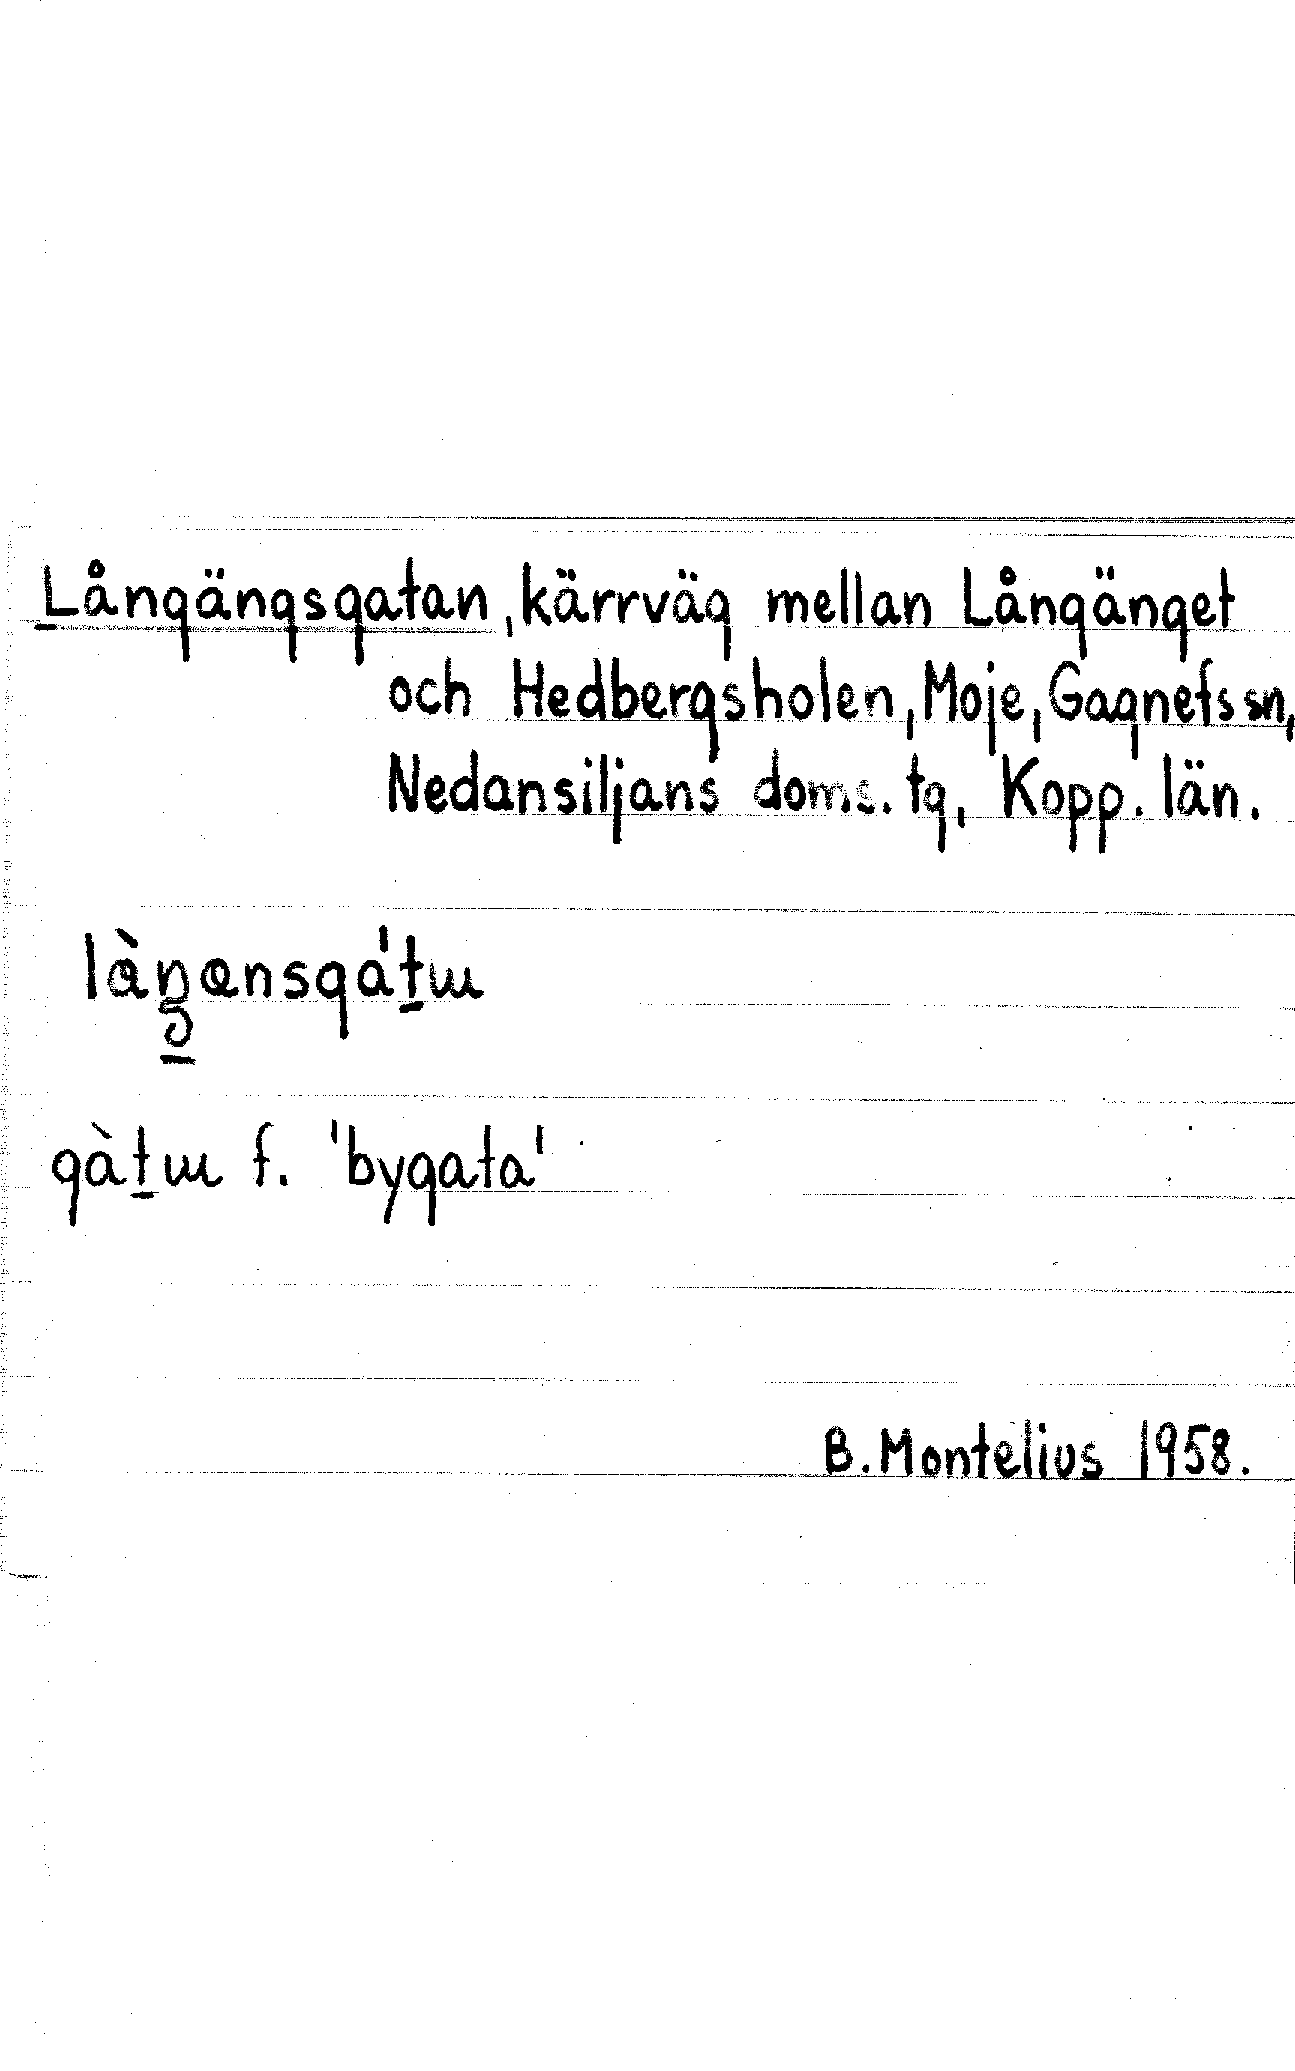 Långängsgatan, kärrväg mellan Långänget
och Hedbergsholen, Moje, Gagnefs sn,
Nedansiljans doms. tg, Kopp. län.
gàt̠ɯ f. 'bygata'
B. Montelius 1958.